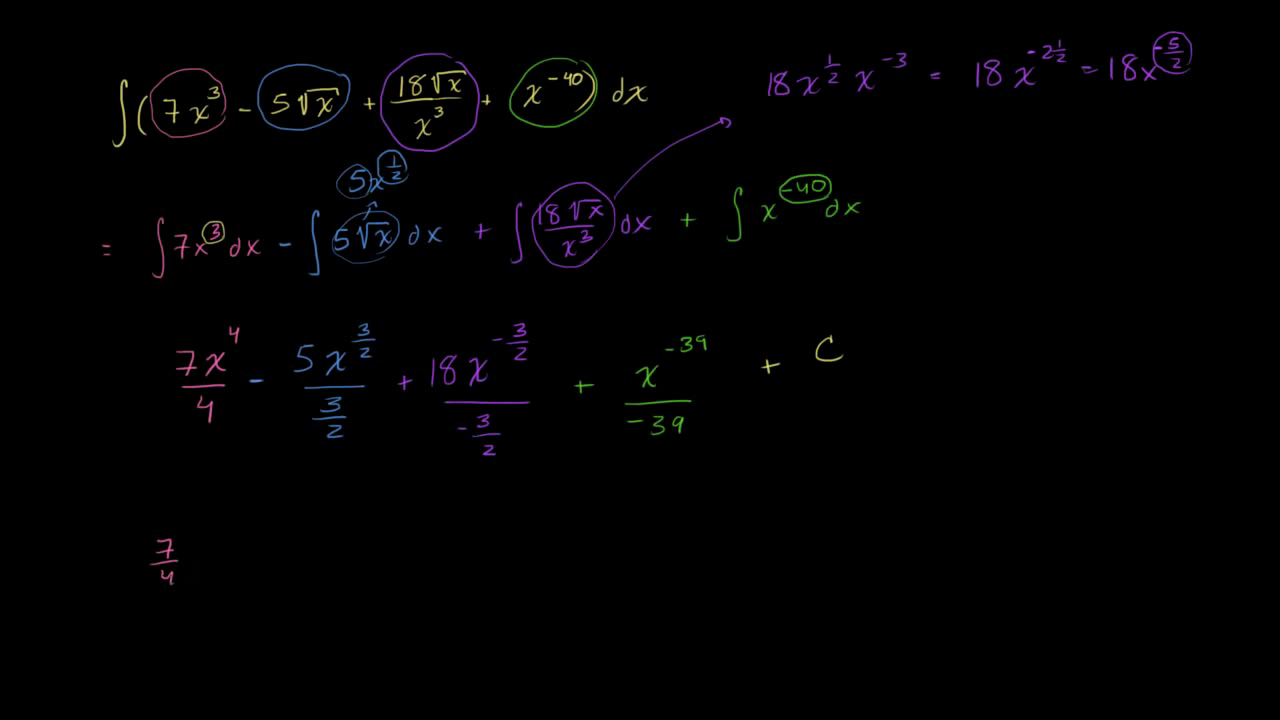 ∫(7x³ - 5√x + 18√x/x³ + x⁻⁴⁰) dx
18x^(1/2) x⁻³ = 18x^(-2 1/2) = 18x^(-5/2)
5x^(1/2)
= ∫7x³ dx - ∫5√x dx + ∫18√x/x³ dx + ∫x⁻⁴⁰ dx
7x⁴/4 - 5x^(3/2)/(3/2) + 18x^(-3/2)/(-3/2) + x⁻³⁹/-39 + C
7/4